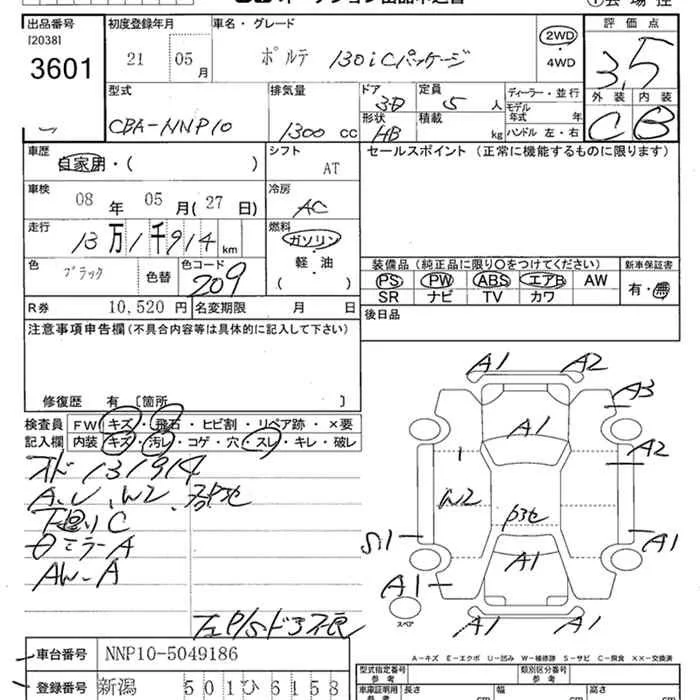 出品番号 初度登録年月 車名・グレード 2WD ・ 4WD 評価点
[20381
3601
21 05 月
ポルテ 130i Cパッケージ
3.5
型式 排気量 ドア 定員 ディーラー・並行 外装 内装
CBA-NNP10 1300 cc 3D 5 人 モデル年式 年 C B
形状 積載
HB kg ハンドル 左・右
車歴 シフト セールスポイント (正常に機能するものに限ります)
自家用・( ) AT
車検 冷房
08 年 05 月(27 日) AC
走行 燃料
13万1千914 km ガソリン
軽・油
( )
色 色コード 装備品(純正品に限り○をつけてください) 新車保証書
ブラック 色替 209 PS PW ABS エアB AW 有・無
SR ナビ TV カワ
R券 10,520 円 名変期限 月 日 後日品
注意事項申告欄(不具合内容等は具体的に記入して下さい)
修復歴 有 [箇所 ]
検査員 FW キズ・飛石・ヒビ割・リペア跡・×要
記入欄 内装 キズ・汚レ・コゲ・穴・スレ・キレ・破レ
オド131914
A、U、W2、
下廻りC
ミラーA
AW-A
P/Sドア不良
A1 A2
A3
A1
A2
W2
S1 A1
A1
A1
スペア
A1 A1
A-キズ E-エクボ U-凹み W-補修跡 S-サビ C-腐食 ××-交換済
車台番号 NNP10-5049186
型式指定番号 参考 類別区分番号 参考
登録番号 新潟 501ひ6158
車庫証明用 参考 長さ cm 幅 cm 高さ cm